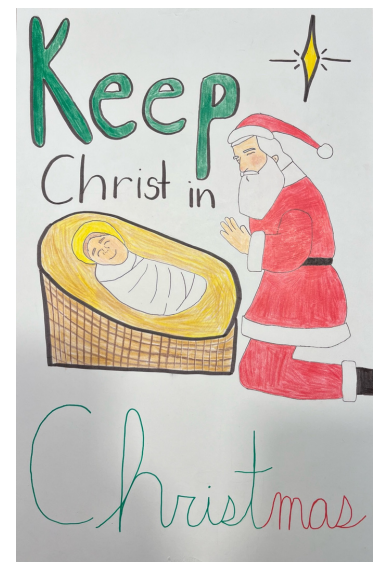 Keep
Christ in
Christmas